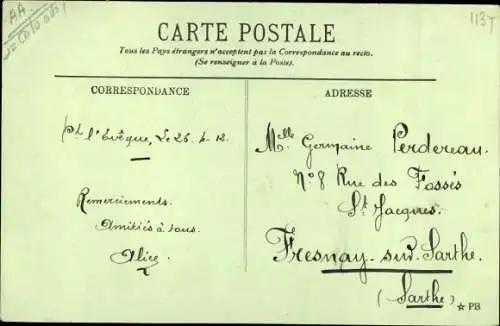 AA
= Calvados
113T
CARTE POSTALE
Tous les Pays étrangers n'acceptent pas la Correspondance au recto.
(Se renseigner à la Poste).
CORRESPONDANCE
Pt l'Evêque, le 26. 4. 12.
Remerciements.
Amitiés à tous.
Alice.
ADRESSE
Melle Germaine Perdereau.
N°8 Rue des Fossés
St Jacques.
Fresnay-sur-Sarthe.
(Sarthe)
☆ PB